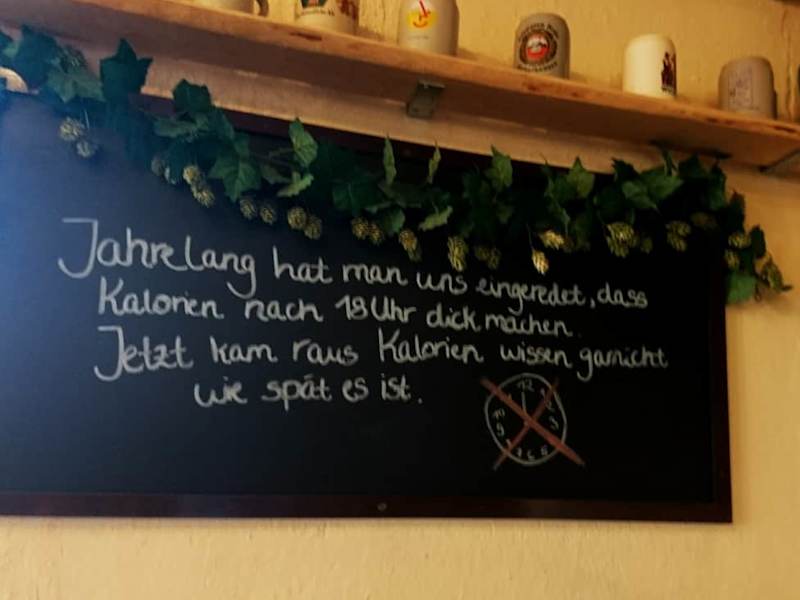 Jahrelang hat man uns eingeredet, dass
Kalorien nach 18 Uhr dick machen.
Jetzt kam raus Kalorien wissen garnicht
wie spät es ist.
12